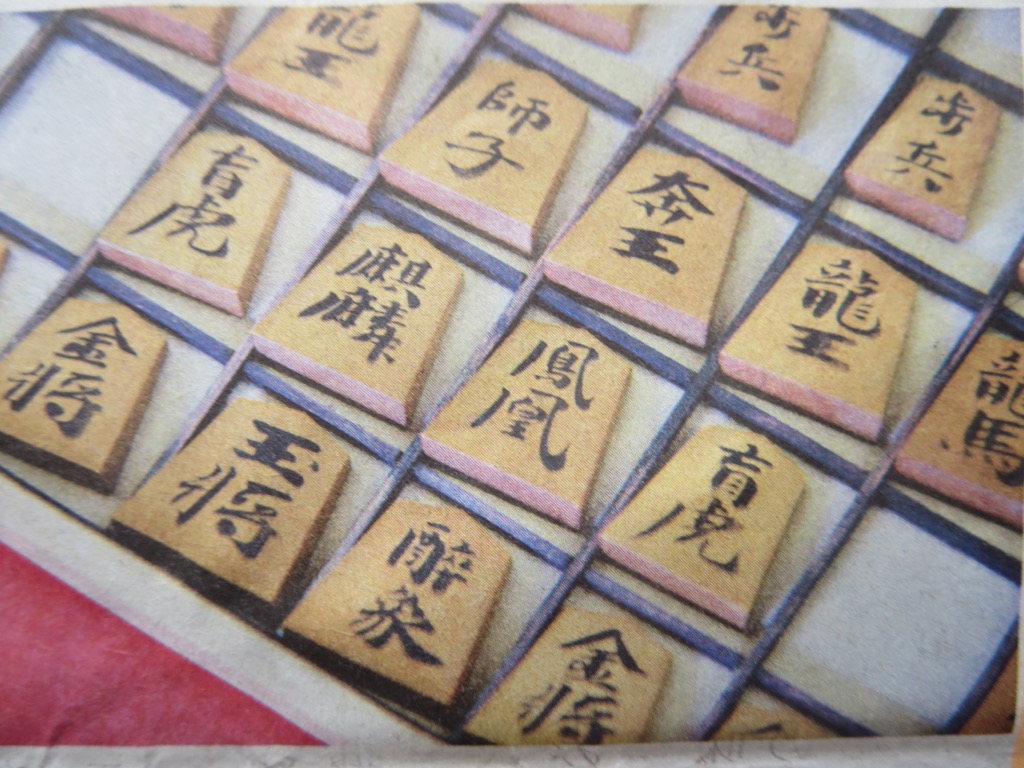 龍王
師子
歩兵
歩兵
盲虎
麒麟
奔王
龍王
龍馬
金将
玉将
鳳凰
盲虎
酔象
金将